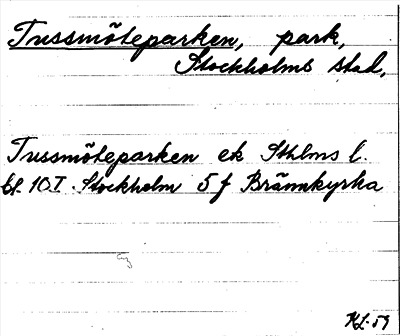 Tussmöteparken, park,
Stockholms stad,
Tussmöteparken ek Sthlms l.
bl. 10 I Stockholm 5 f Brännkyrka
KL. 59